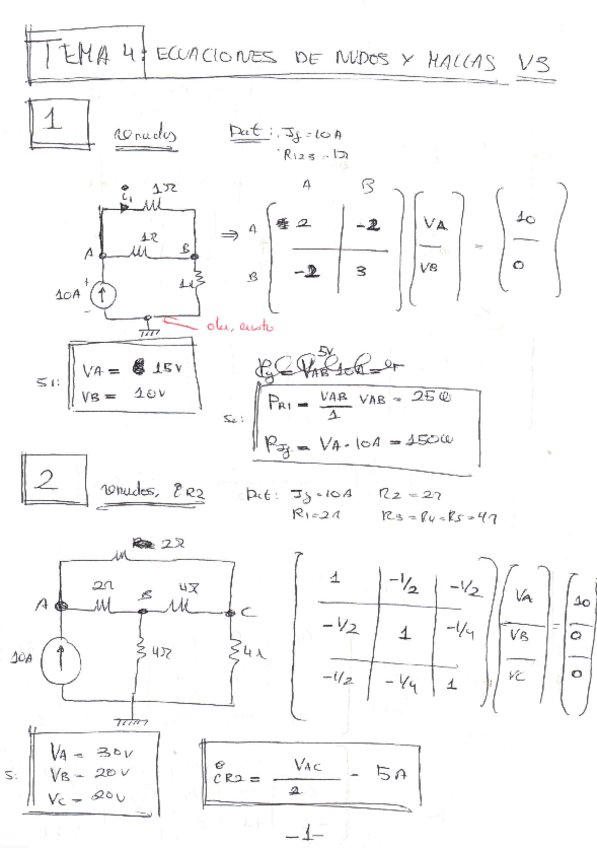 TEMA 4: ECUACIONES DE NUDOS Y MALLAS V3
1
Dat: Jg = 10A
R123 = 1Ω
i1 1Ω
A 1Ω B
1Ω
10A + -
⇒
A B
A 2 -2
B -2 3
VA
VB
=
10
0
S1: VA = 15V
VB = 10V
5V
Se: PR1 = VAB/1 VAB = 25W
PJg = VA · 10A = 150W
2
nudos, iR2
Dat: Jg = 10A R2 = 2Ω
R1 = 2Ω R3 = R4 = R5 = 4Ω
2Ω
A 2Ω B 4Ω C
10A 4Ω 4Ω
1 -1/2 -1/2
-1/2 1 -1/4
-1/2 -1/4 1
VA
VB
VC
=
10
0
0
S: VA = 30V
VB = 20V
VC = 20V
iR2 = VAC/2 = 5A
-1-